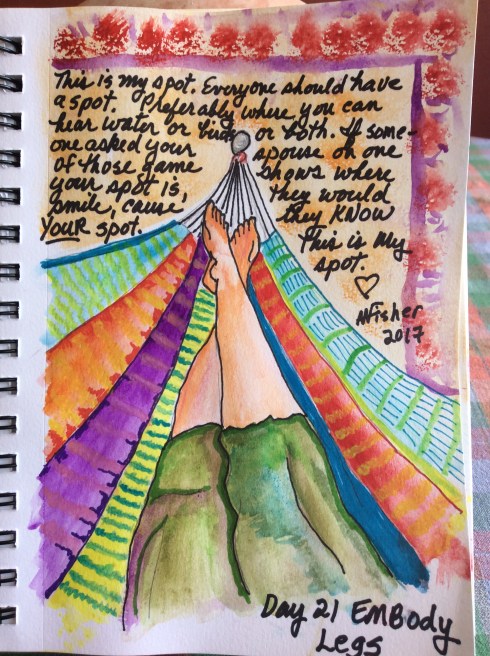 This is my spot. Everyone should have
a spot. Preferably where you can
hear water or birds or both. If some-
one asked your spouse on one
of those game shows where
your spot is, they would
smile, cause they KNOW
YOUR spot.
This is my
spot.
MFisher
2017
Day 21 EMBody
Legs